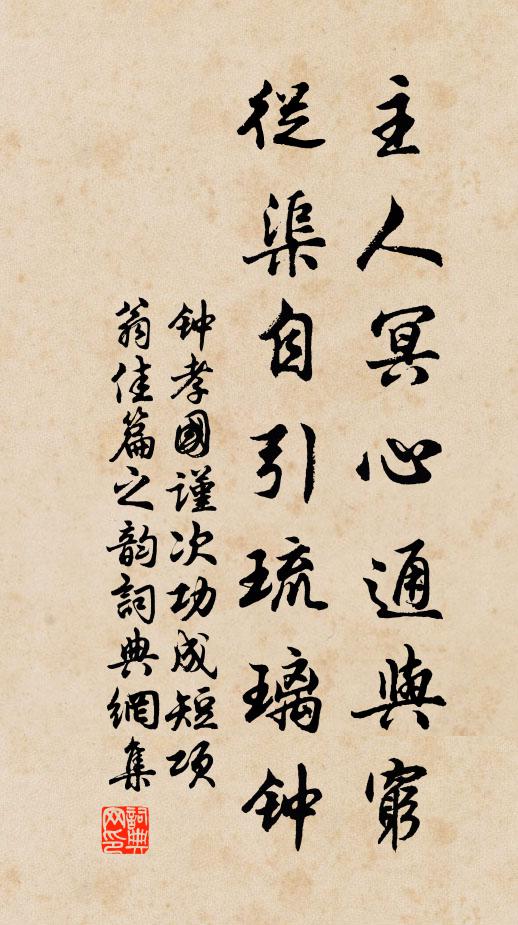 主人冥心通與窮
從渠自引琉璃钟
钟孝國謹次功成短項
翁佳篇之韵詞典網集
詞典网印